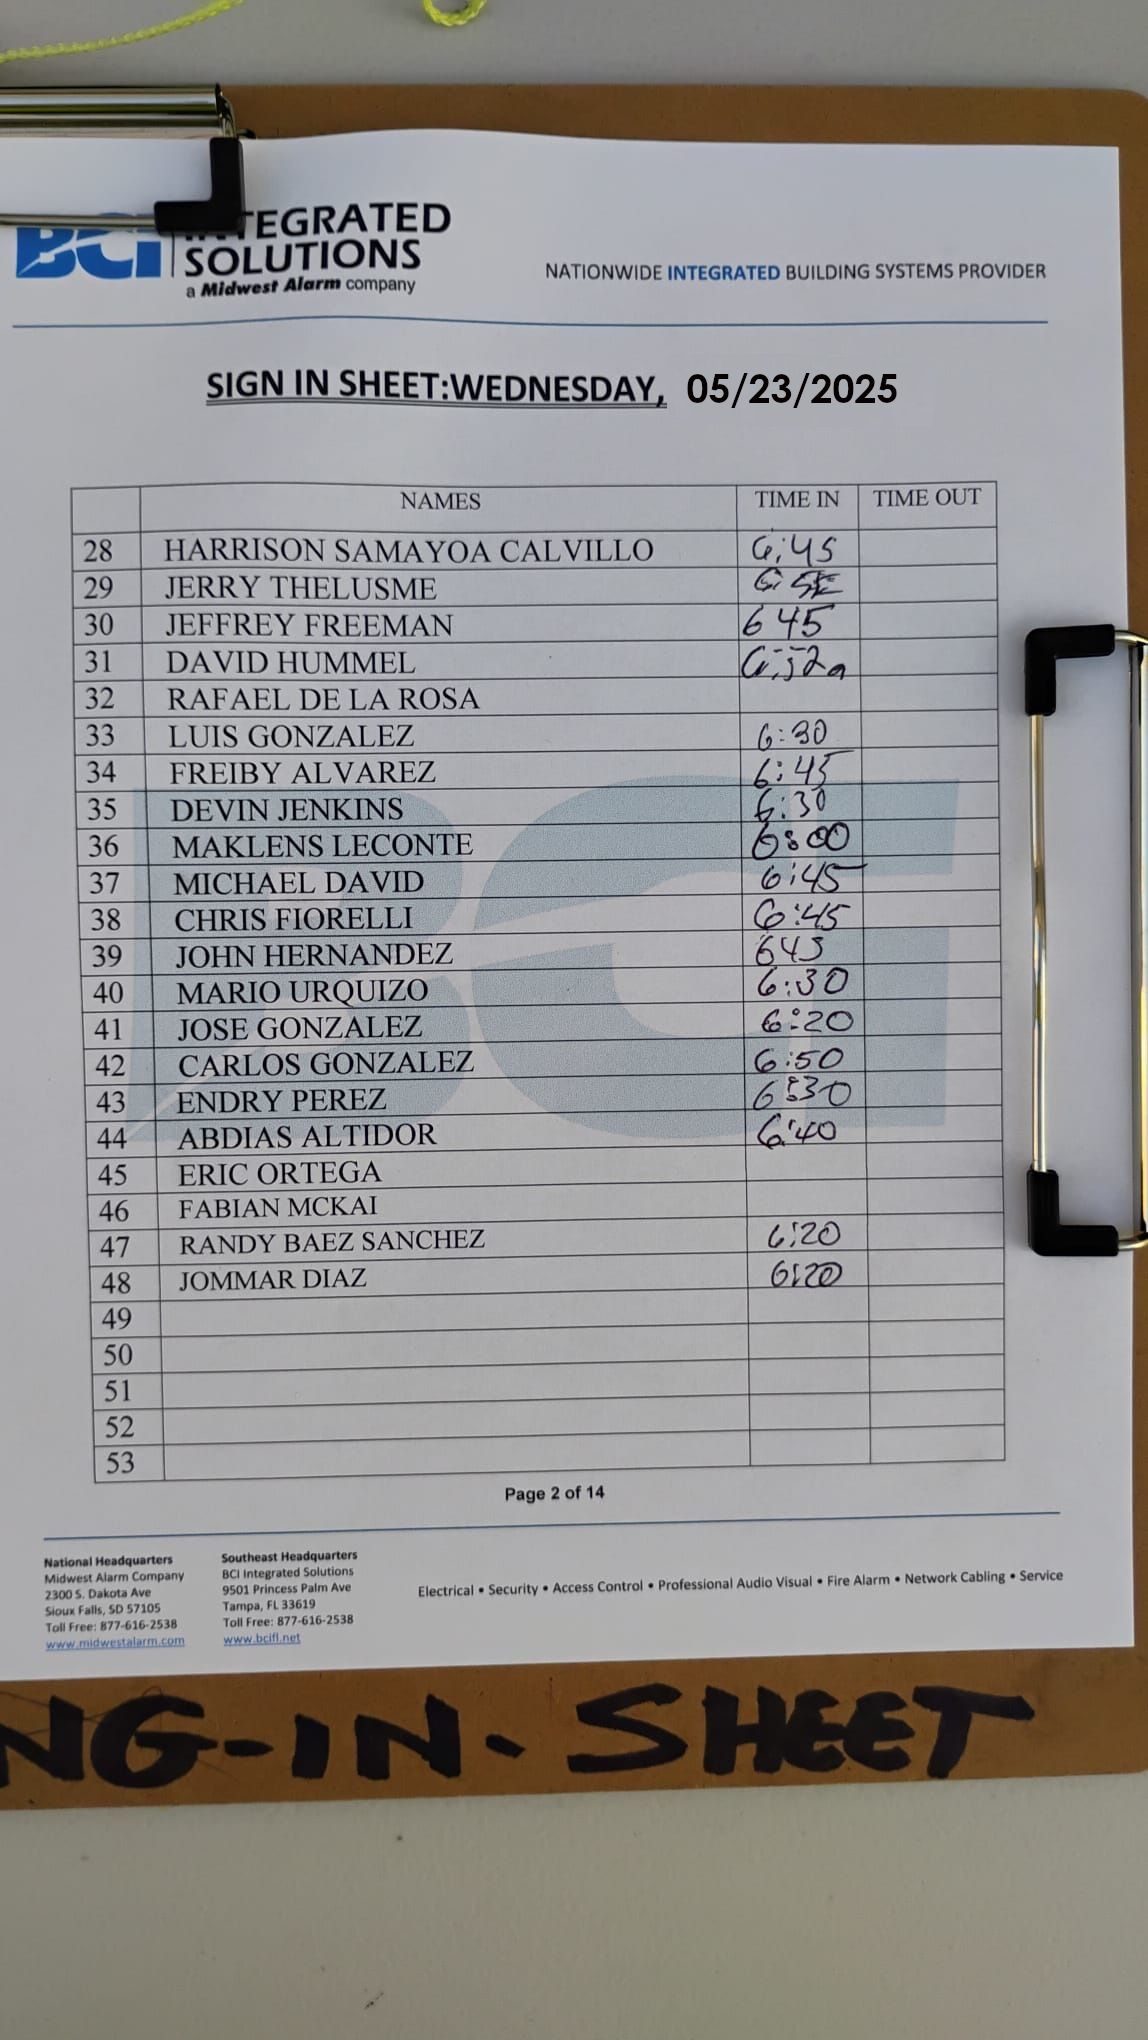 BCI INTEGRATED
SOLUTIONS
a Midwest Alarm company
NATIONWIDE INTEGRATED BUILDING SYSTEMS PROVIDER
SIGN IN SHEET:WEDNESDAY, 05/23/2025
NAMES TIME IN TIME OUT
28 HARRISON SAMAYOA CALVILLO 6:45
29 JERRY THELUSME
30 JEFFREY FREEMAN 6 45
31 DAVID HUMMEL 6:52a
32 RAFAEL DE LA ROSA
33 LUIS GONZALEZ 6:30
34 FREIBY ALVAREZ 6:45
35 DEVIN JENKINS 6:30
36 MAKLENS LECONTE 6:00
37 MICHAEL DAVID 6:45
38 CHRIS FIORELLI 6:45
39 JOHN HERNANDEZ 645
40 MARIO URQUIZO 6:30
41 JOSE GONZALEZ 6:20
42 CARLOS GONZALEZ 6:50
43 ENDRY PEREZ 6:30
44 ABDIAS ALTIDOR 6:40
45 ERIC ORTEGA
46 FABIAN MCKAI
47 RANDY BAEZ SANCHEZ 6:20
48 JOMMAR DIAZ 6:20
49
50
51
52
53
Page 2 of 14
National Headquarters
Midwest Alarm Company
2300 S. Dakota Ave
Sioux Falls, SD 57105
Toll Free: 877-616-2538
www.midwestalarm.com
Southeast Headquarters
BCI Integrated Solutions
9501 Princess Palm Ave
Tampa, FL 33619
Toll Free: 877-616-2538
www.bcifl.net
Electrical • Security • Access Control • Professional Audio Visual • Fire Alarm • Network Cabling • Service
NG-IN-SHEET